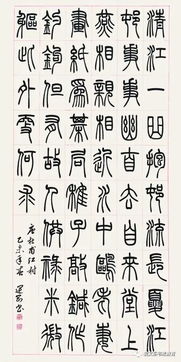 清江一曲抱邨流長夏江
邨事事幽自去自來堂上
燕相親相近水中鷗老妻
畫紙為棊局稚子敲鍼作
釣鉤但有故人供祿米微
軀此外更何求
唐杜甫江村
乙未年